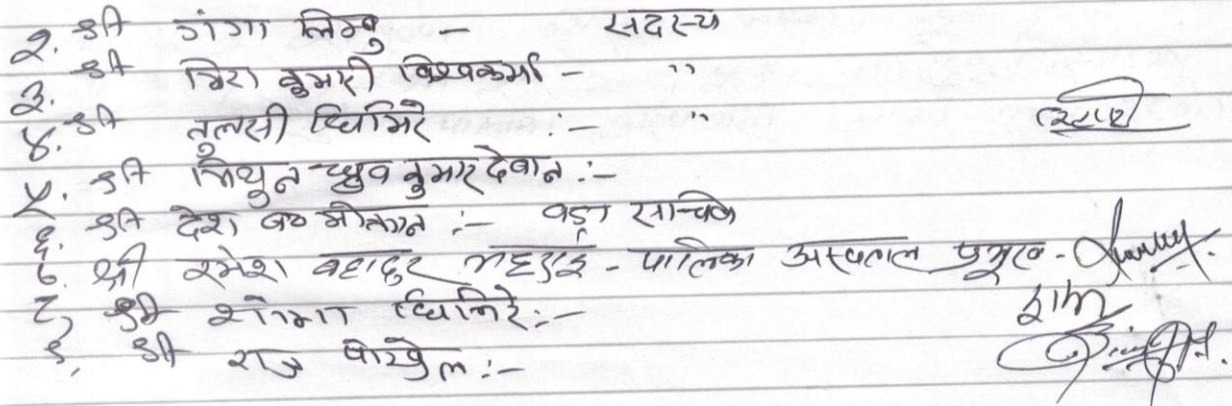 २. श्री गंगा लिम्बु - सदस्य
३. श्री मिरा कुमारी विश्वकर्मा - "
४. श्री तुलसी घिमिरे :- "
५. श्री मिथुन ध्रुव कुमार देवान :-
६. श्री देश :- वडा सचिव
७. श्री रमेश बहादुर - पालिका अस्पताल प्रमुख -
८, श्री शोभा घिमिरे :-
९, श्री राजु पोख्रेल :-